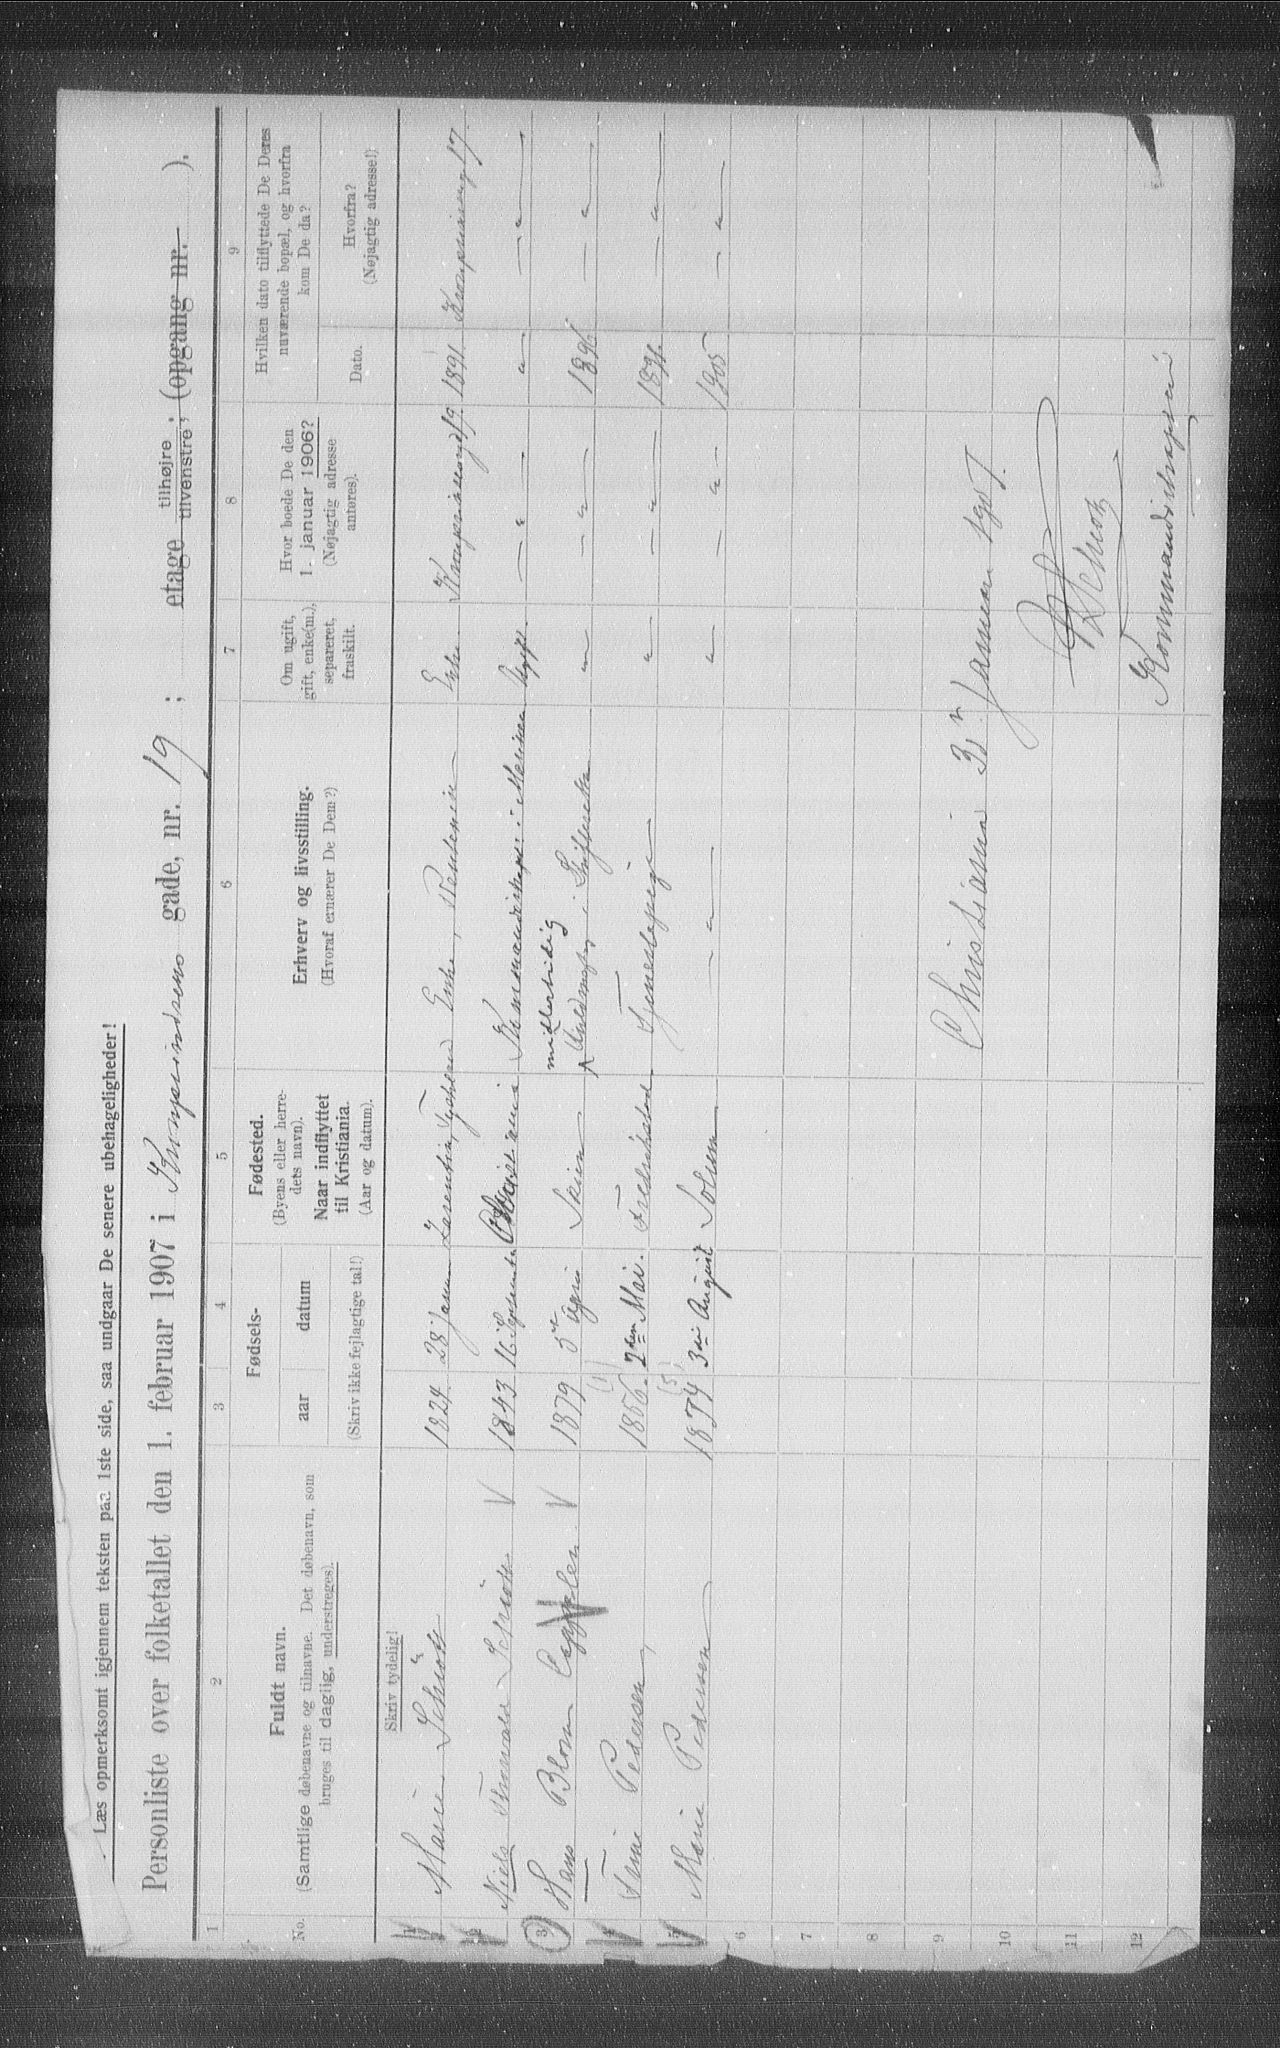 Læs opmerksomt igjennem teksten paa 1ste side, saa undgaar De senere ubehageligheder!
Personliste over folketallet den 1. februar 1907 i Kronprindsens gade, nr. 19 ; etage tilhøjre tilvenstre ; (opgang nr. ).
1 2 3 4 5 6 7 8 9
No.
Fuldt navn.
(Samtlige døbenavne og tilnavne. Det døbenavn, som
bruges til daglig, understreges).
Fødsels-
aar datum
(Skriv ikke fejlagtige tal!)
Fødested.
(Byens eller herre-
dets navn).
Naar indflyttet
til Kristiania.
(Aar og datum).
Erhverv og livsstilling.
(Hvoraf ernærer De Dem?)
Om ugift,
gift, enke(m.),
separeret,
fraskilt.
Hvor boede De den
1. januar 1906?
(Nøjagtig adresse
anføres).
Hvilken dato tilflyttede De Deres
nuværende bopæl, og hvorfra
kom De da?
Dato.
Hvorfra?
(Nøjagtig adresse!)
Skriv tydelig!
1 Marie Schiøtt 1824 28 Januar Enke, Rentenier Enke 19. 1891. 17.
2 Niels Schiøtt V 1843 16 September Christiania i Marinen Ugift. — " — "  — " —
3 Hans Blom Cappelen V 1879 5te Skien midlertidig — " — — " — 1896 — " —
4 Tina Pedersen, (1) 1856. 2den Mai. Fredrikstad Tjenestepige " — " — 1891. — " —
5 Marie Pedersen (5) 1874 3die August Solum — " — " — " — 1905 — " —
6
7
8
9 Christiania
10 Januar 1907.
11 Schiøtt
12